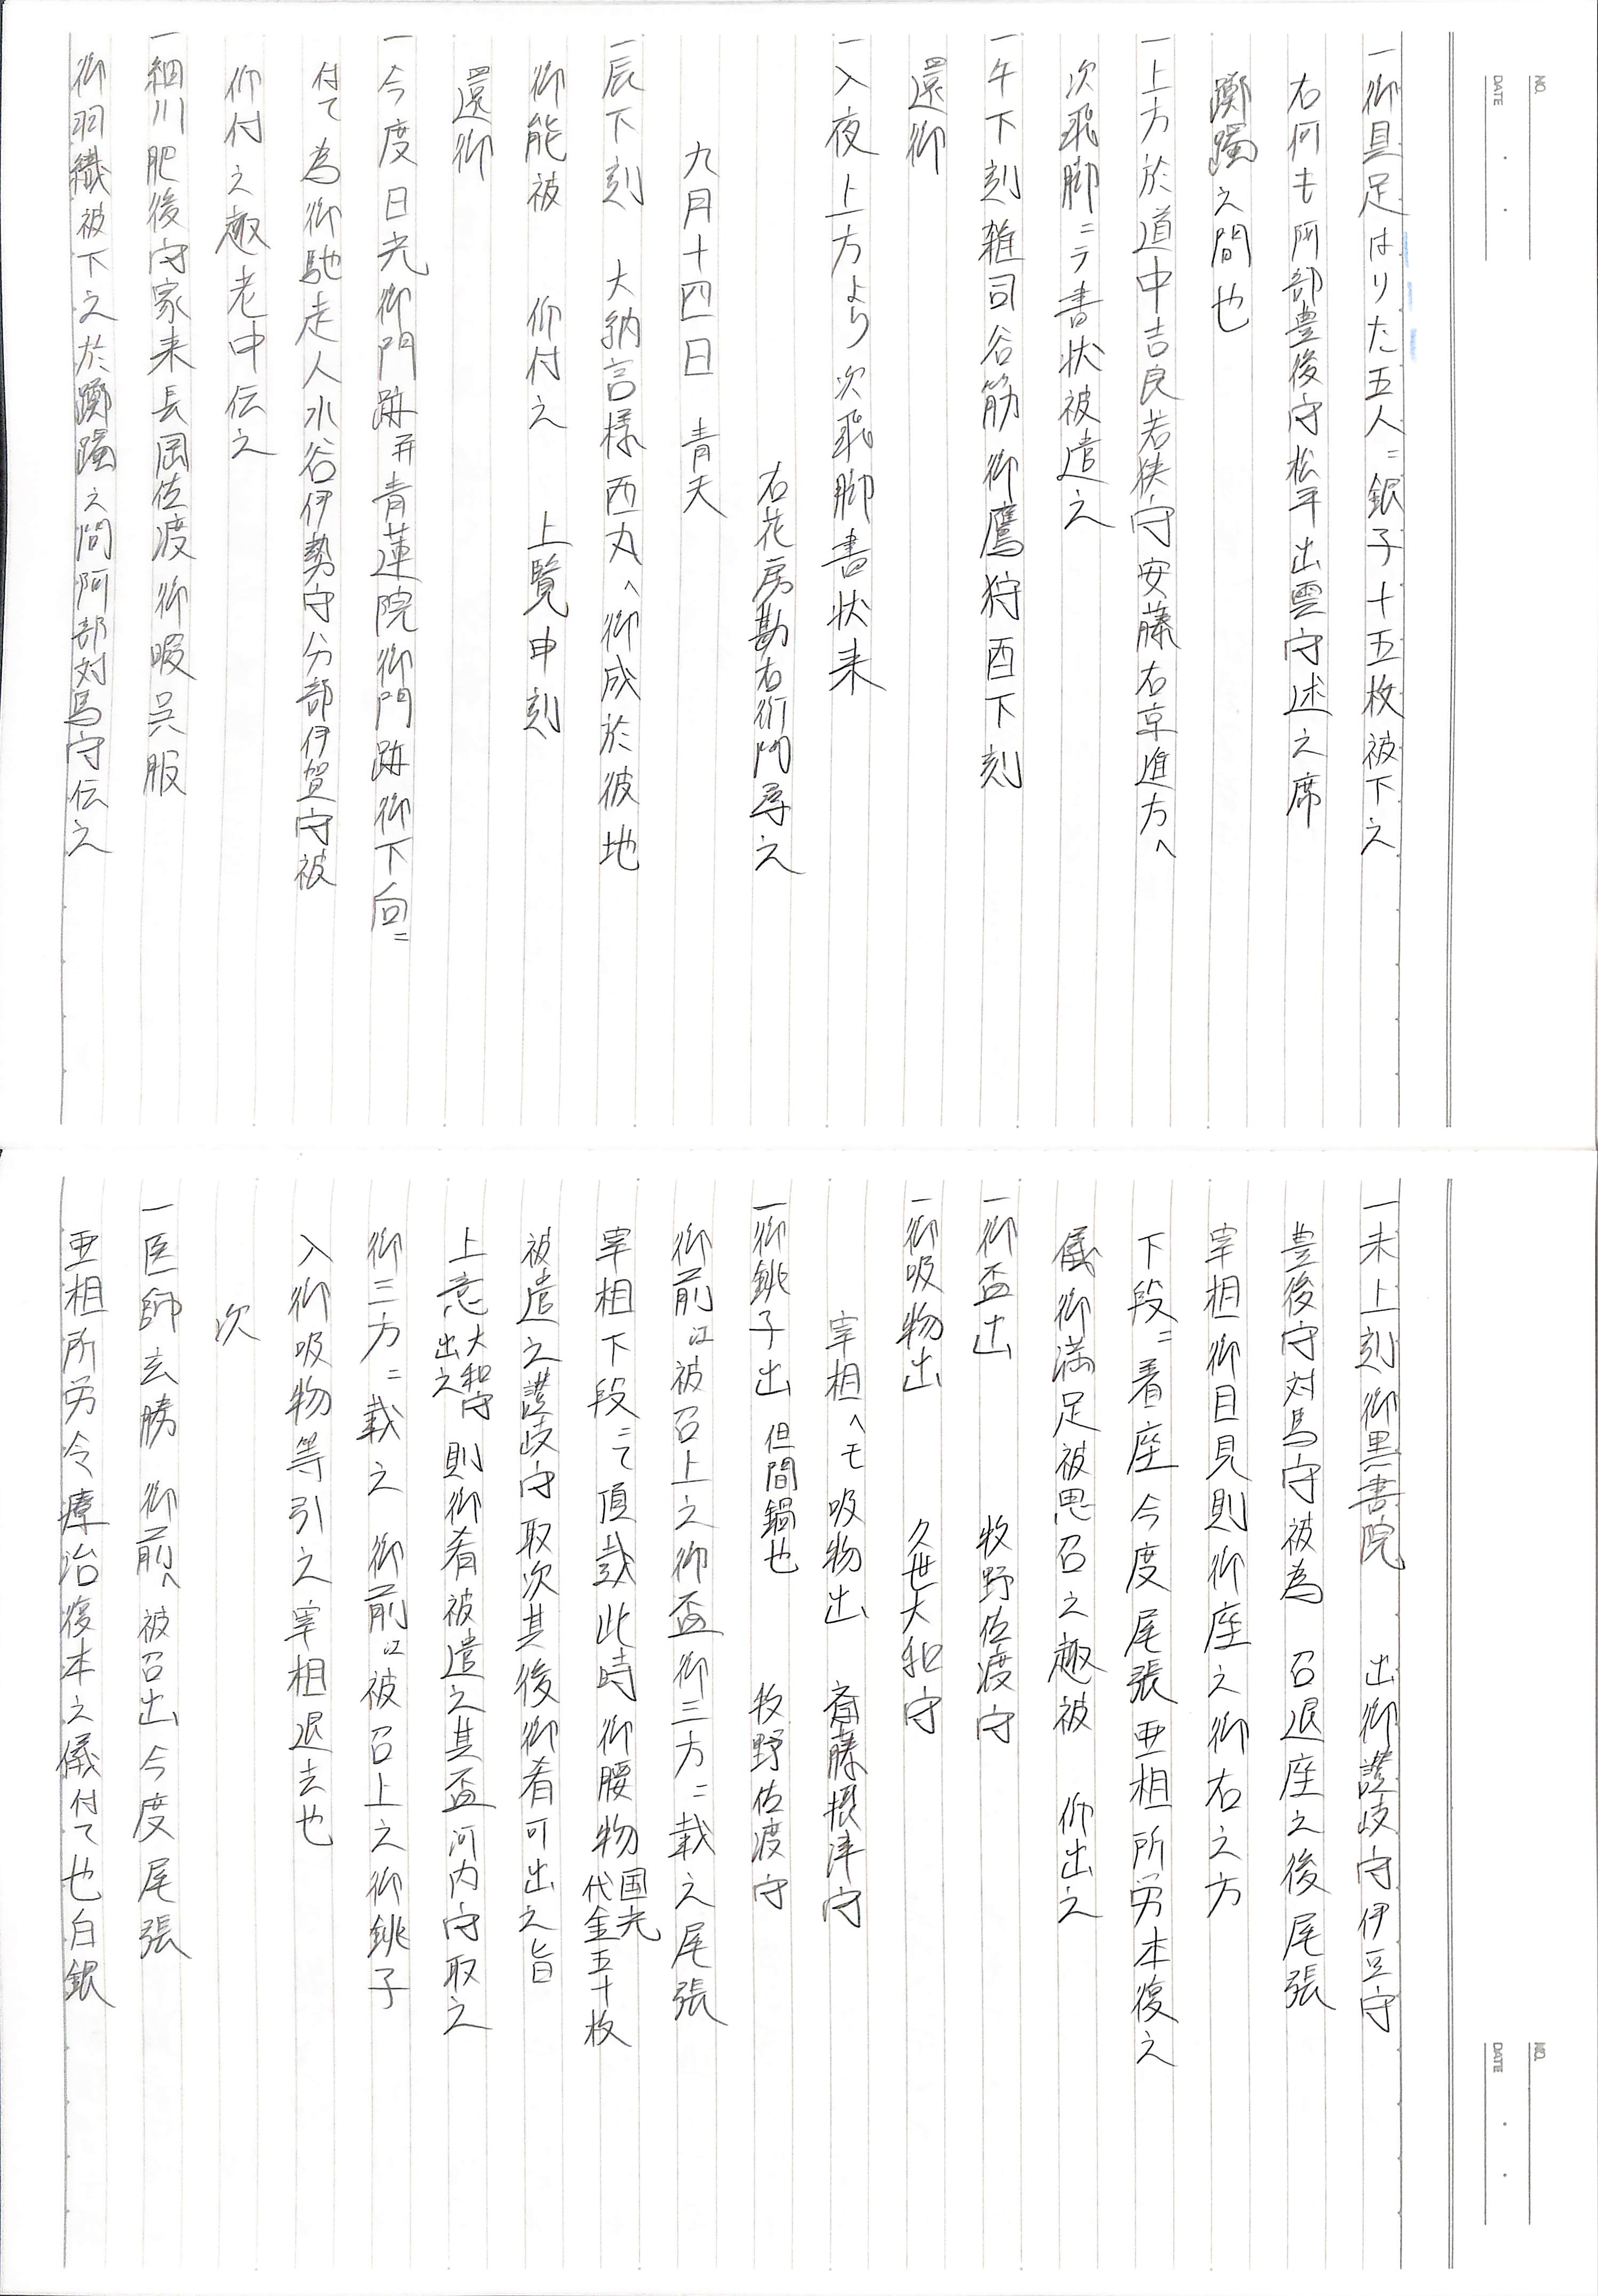 NO.
DATE
一御具足はりた五人ニ銀子十五枚被下之
右何も阿部豊後守松平出雲守述之席
躑躅之間也
一上方於道中吉良若狭守安藤右京進方へ
次飛脚ニテ書状被遣之
一午下刻雑司谷筋御鷹狩酉下刻
還御
一入夜上方より次飛脚書状来
右花房勘右衛門尋之
九月十四日 青天
一辰下刻 大納言様西丸へ御成於彼地
御能被 仰付之 上覧申刻
還御
一今度日光御門跡并青蓮院御門跡御下向ニ
付て為御馳走人水谷伊勢守分部伊賀守被
仰付之趣老中伝之
一細川肥後守家来長岡佐渡御暇呉服
御羽織被下之於躑躅之間阿部対馬守伝之
NO.
DATE
一未上刻御黒書院 出御讃岐守伊豆守
豊後守対馬守被為 召退座之後尾張
宰相御目見則御座之御右之方
下段ニ着座今度尾張亜相所労本復之
儀御満足被思召之趣被 仰出之
一御盃出 牧野佐渡守
一御吸物出 久世大和守
宰相へモ吸物出 斎藤摂津守
一御銚子出 但間鍋也 牧野佐渡守
御前江被召上之御盃御三方ニ載之尾張
宰相下段ニて頂戴此時御腰物国光代金五十枚
被遣之讃岐守取次其後御肴可出之旨
上意大和守出之則御肴被遣之其盃河内守取之
御三方ニ載之 御前江被召上之御銚子
入御吸物等引之宰相退去也
次
一医師玄勝 御前へ被召出今度尾張
亜相所労令療治復本之儀付て也白銀